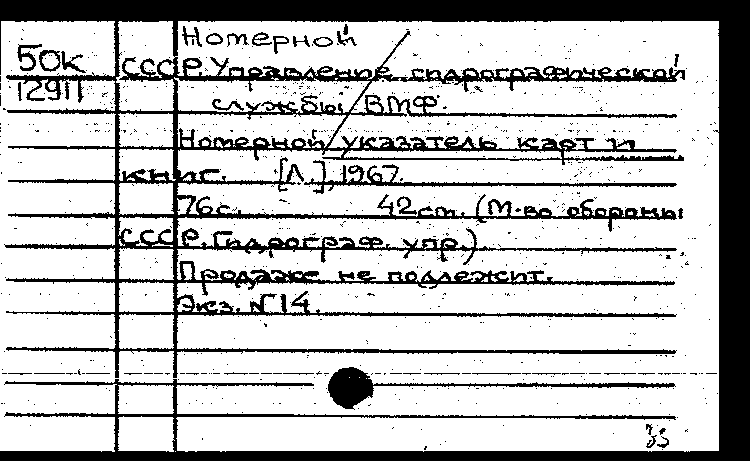 Номерной
50к СССР. Управление гидрографической
12911
службы ВМФ.
Номерной указатель карт и
книг. [Л.], 1967.
76с. 42см. (М-во обороны
СССР. Гидрограф. упр.).
Продаже не подлежит.
Экз. N 14.